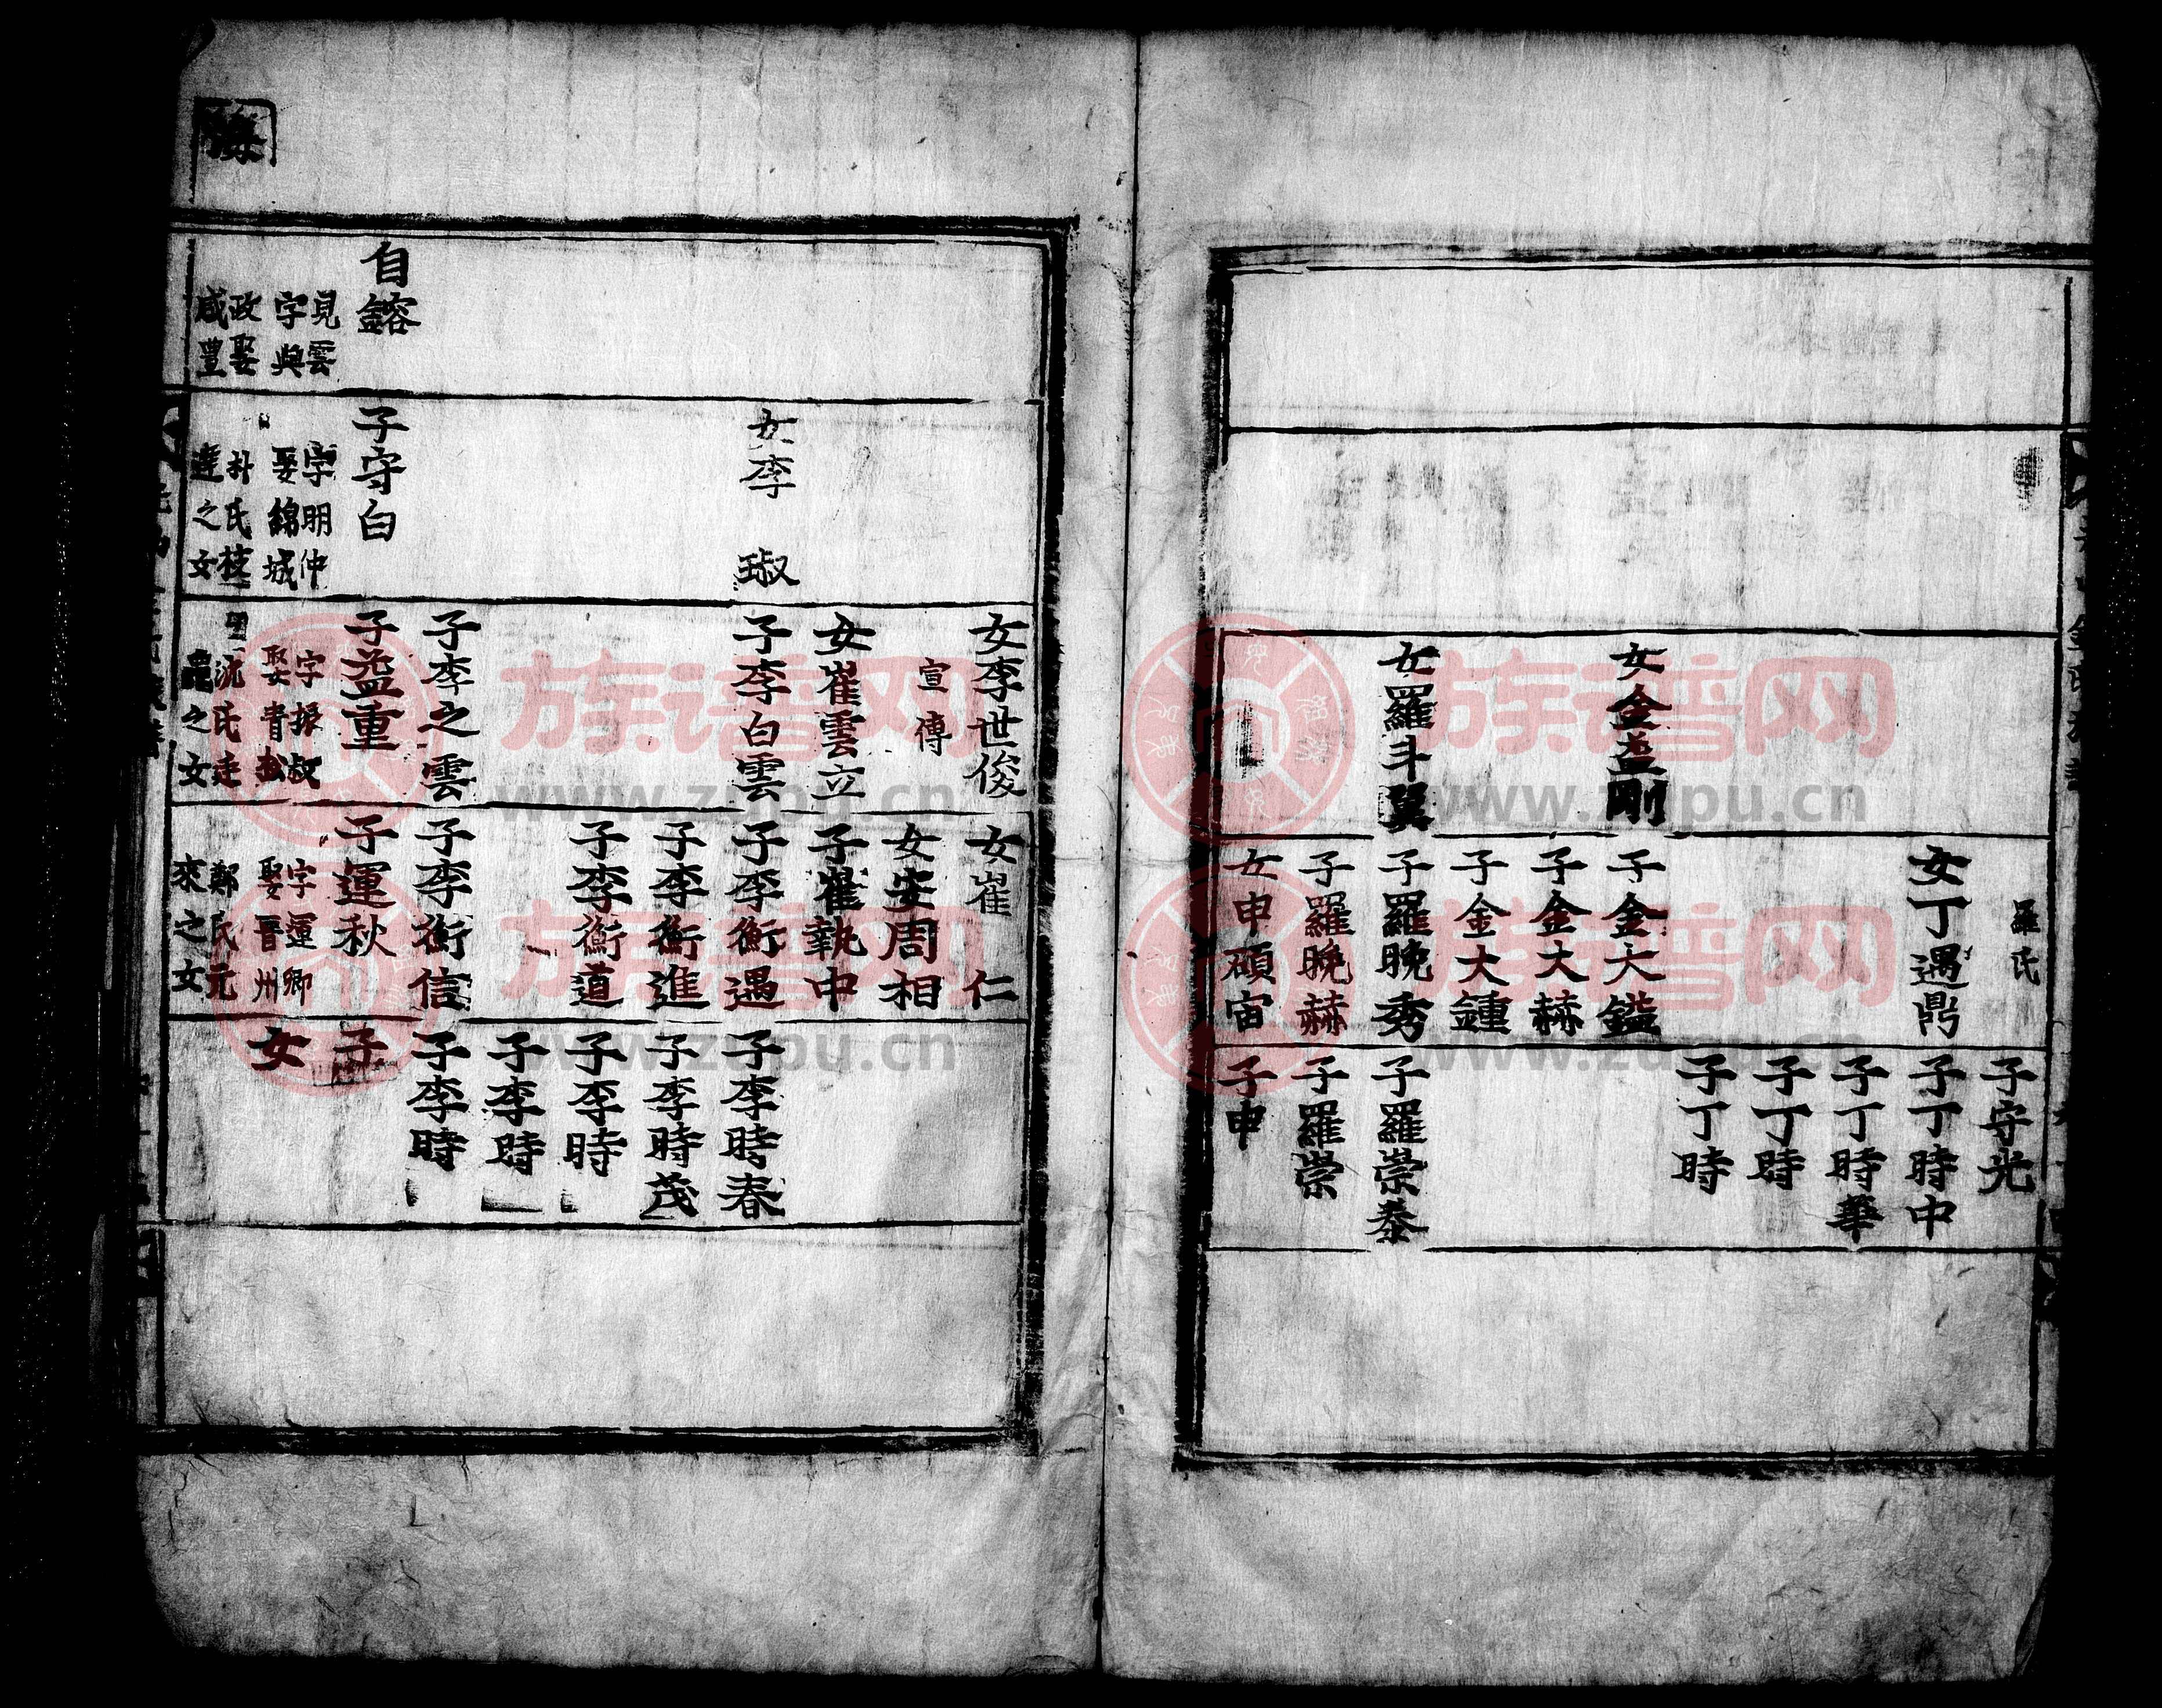 羅氏
女丁遇鼎
子守光
子丁時中
子丁時華
子丁時
子丁時
女金益剛
女羅斗翼
子金大鎰
子金大赫
子金大鍾
子羅晩秀
子羅晩赫
女申碩宙
子羅崇泰
子羅崇
子申
海
自鎔
見雲
字與
政娶
咸豐
女李 琡
子守白
字明仲
娶錦城
朴氏枝
達之女
女李世俊
宣傳
女崔雲立
子李白雲
子李之雲
子益重
字振叔
娶青松
沈氏廷
之女
女崔 仁
女安周相
子崔執中
子李衡遇
子李衡進
子李衡道
子李衡信
子運秋
字運卿
娶晋州
鄭氏元
來之女
子李時春
子李時茂
子李時
子李時
子李時
子
女
族谱网
www.zupu.cn
族谱网
www.zupu.cn
族谱网
www.zupu.cn
族谱网
www.zupu.cn